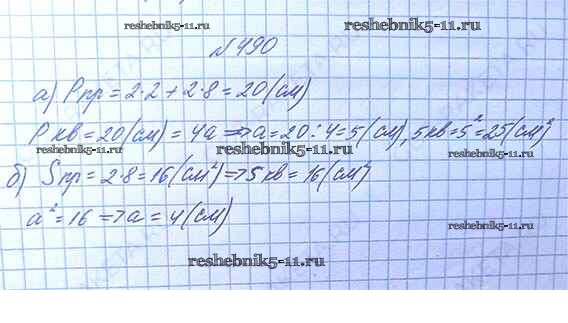 reshebnik5-11.ru
reshebnik5-11.ru
№490
а) Pпр = 2·2 + 2·8 = 20 (см)
Pкв = 20 (см) = 4a => a = 20 : 4 = 5 (см), Sкв = 5² = 25 (см²)
reshebnik5-11.ru
reshebnik5-11.ru
б) Sпр = 2·8 = 16 (см²) => Sкв = 16 (см²)
a² = 16 => a = 4 (см)
reshebnik5-11.ru
reshebnik5-11.ru